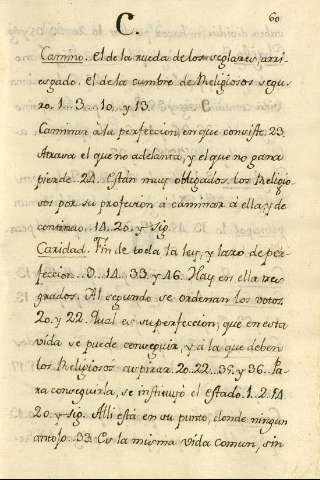 60
C.
Camino. El de la rueda de los seglares, arri-
esgado. El de la cumbre de Religiosos segu-
ro. 1..3..10.. y 13.
Caminar a la perfeccion, en que consiste. 23.
Atrasa el que no adelanta, y el que no gana
pierde. 24. Estàn muy obligados los Religio-
sos por su profesion à caminar à ella, y de
continuo. 14. 20. y sig.
Caridad. Fin de toda la ley, y lazo de per-
feccion. 9. 14. 33. y 46. Hay en ella tres
grados. Al segundo se ordenan los votos.
20. y 22. Qual es su perfeccion, que en esta
vida se puede conseguir, y à la que deben
los Religiosos aspirar. 20..22..35. y 36. Pa-
ra conseguirla, se instituyó el estado. 1. 2. 14.
20. y sig. Alli està en su punto, donde ningun
33. Es la misma vida comun, sin